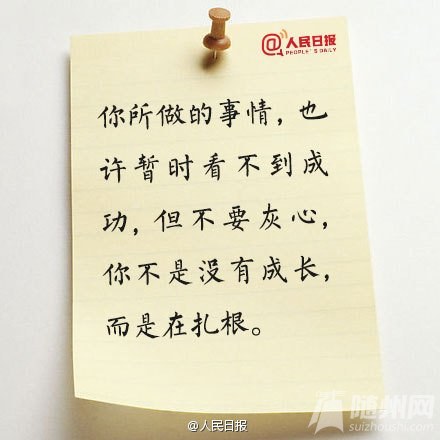 @人民日报
PEOPLE'S DAILY
你所做的事情，也
许暂时看不到成
功，但不要灰心，
你不是没有成长，
而是在扎根。
@人民日报
随州网
suizhoushi.com